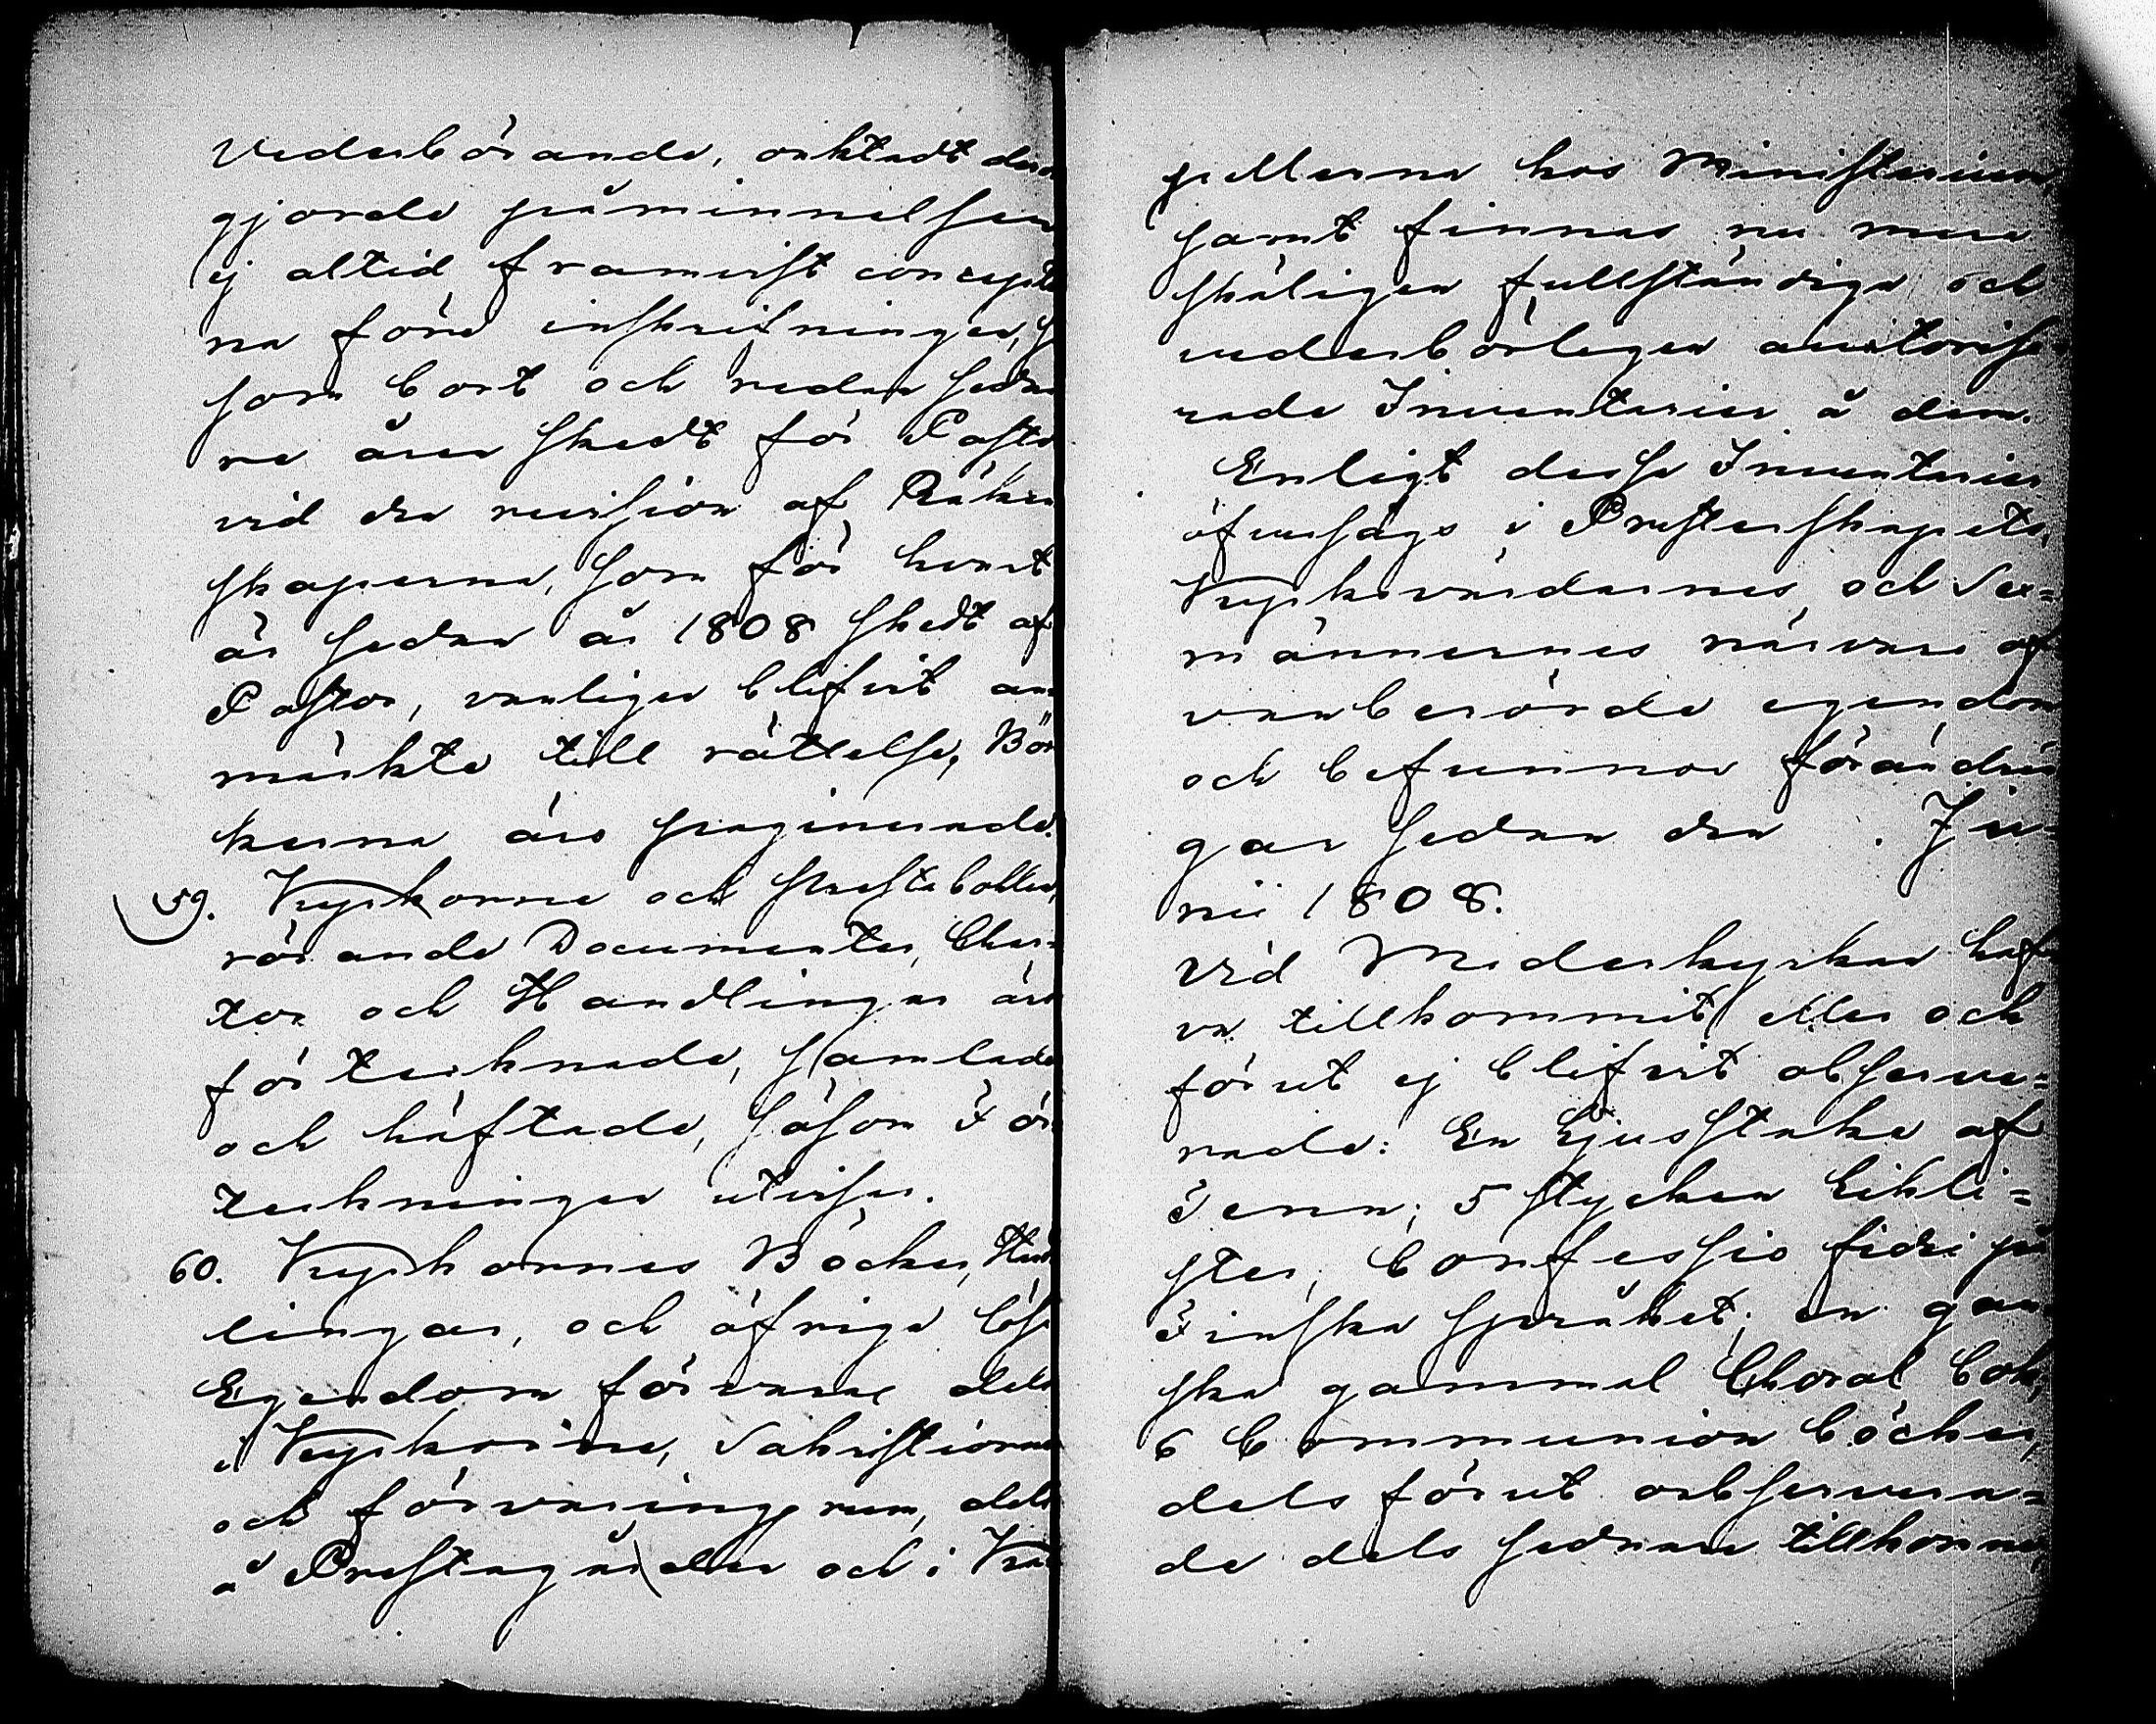 vederbörande, oaktadt der
gjorde påminnelsen
ej altid framvist concepte
na före inskrifningen,
som bort och redan sedna
re åren skedt för Pasto
vid den revision af Räken
skaperna, som för hvart
år sedan år 1808 skedt af
Pastor, vanligen blifvit an
märkte till rättelse, Böc
kerna äro paginerade.
59. Kyrkorne och Prestabollen,
rörande Documenter, Char=
tor och Handlingar äro
förtecknade, samlade
och häftade, såsom För
teckningen utviser.
60. Kyrkornes Böcker, Hand
lingar, och öfriga lösa
Egendom förvaras dels
i Kyrkorne, Sakristiorna
och förvaringsrum, dels
å Prestagården och i Ka
pellerna hos Ministerium
samt finnas nu mera
skäligen fullständiga och
vederbörligen auctorise
rade Inventarier å dem.
Enligt dessa Inventarier
öfversågs i Presterskapets,
Kyrkovärdarnes och Sex=
männernes närvaro of
vanberörde egendom
och befunnos förändrin
gar sedan den . Ju=
nii 1808.
Vid Moderkyrkan haf
va tillkommit eller och
förut ej blifvit observe=
rade: En Ljusstaka af
Tenn; 5 stycken Likki=
stor, Confessio fidei på
Finska språket; en gan
ska gammal Choral bok,
6 Communion böcker,
dels förut observera=
de dels sednare tillkomne,